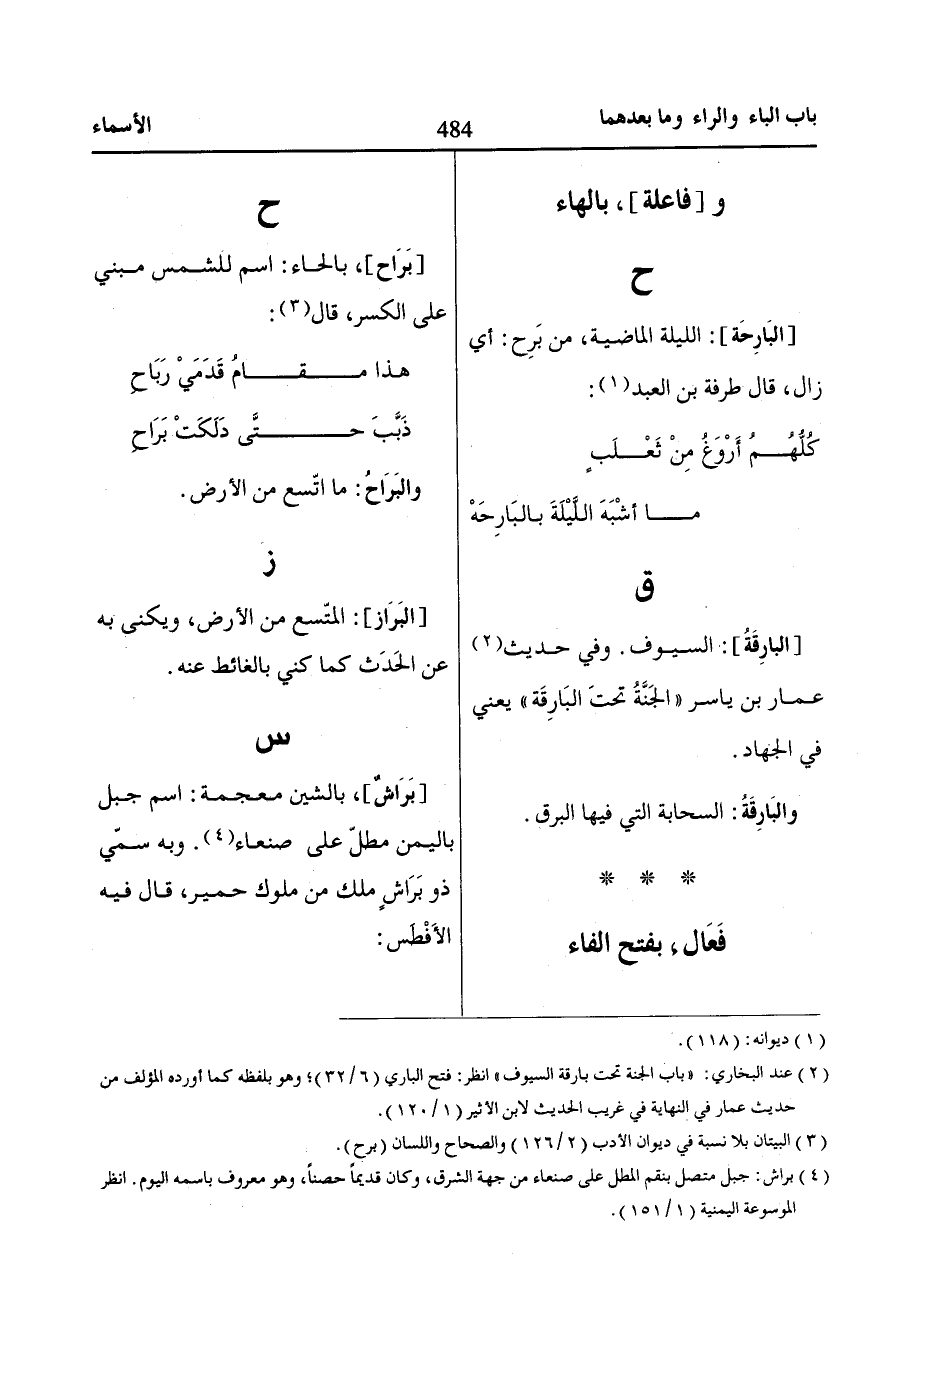 باب الباء والراء وما بعدهما
484
الأسماء
و [فاعلة]، بالهاء
ح
[البَارِحَة]: الليلة الماضية، من بَرِح: أي
زال، قال طرفة بن العبد(١):
كُلُّهُـــمُ أَرْوَغُ مِنْ ثَعْـــلَبٍ
مـــا أشْبَهَ اللَّيْلَةَ بالبَارِحَهْ
ق
[البارِقَةُ]: السيوف. وفي حديث(٢)
عمار بن ياسر «الجَنَّةُ تحتَ البَارِقَة» يعني
في الجهاد.
والبَارِقَةُ: السحابة التي فيها البرق.
* * *
فَعَال، بفتح الفاء
ح
[بَرَاح]، بالحاء: اسم للشمس مبني
على الكسر، قال(٣):
هذا مـــقـــامُ قَدَمَيْ رَبَاحِ
ذَبَّبَ حـــتَّى دَلَكَتْ بَرَاحِ
والبَرَاحُ: ما اتّسع من الأرض.
ز
[البَرَاز]: المتّسع من الأرض، ويكنى به
عن الحَدَث كما كني بالغائط عنه.
س
[بَرَاشٌ]، بالشين معجمة: اسم جبل
باليمن مطلّ على صنعاء(٤). وبه سمّي
ذو بَرَاشٍ ملك من ملوك حمير، قال فيه
الأَفْطَس:
(١) ديوانه: (١١٨).
(٢) عند البخاري: «باب الجنة تحت بارقة السيوف» انظر: فتح الباري (٣٢/٦)؛ وهو بلفظه كما أورده المؤلف من
حديث عمار في النهاية في غريب الحديث لابن الأثير (١٢٠/١).
(٣) البيتان بلا نسبة في ديوان الأدب (١٢٦/٢) والصحاح واللسان (برح).
(٤) براش: جبل متصل بنقم المطل على صنعاء من جهة الشرق، وكان قديماً حصناً، وهو معروف باسمه اليوم. انظر
الموسوعة اليمنية (١٥١/١).